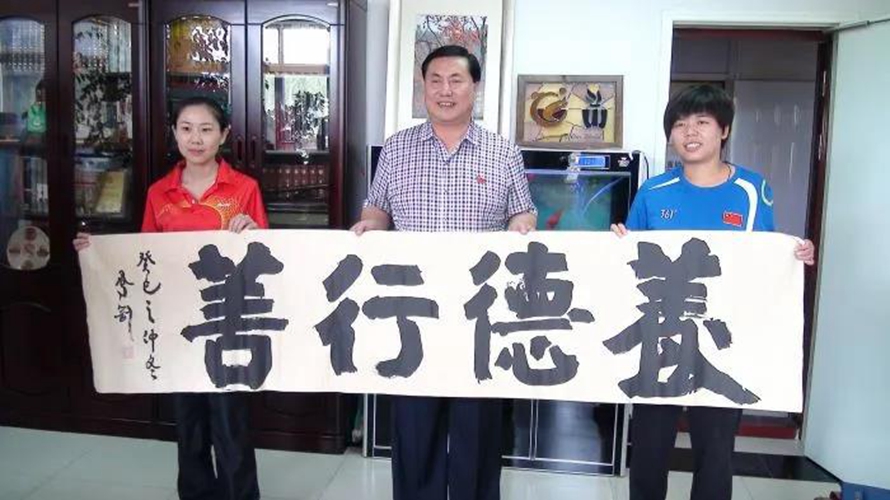 養德行善
癸巳之仲冬
361°